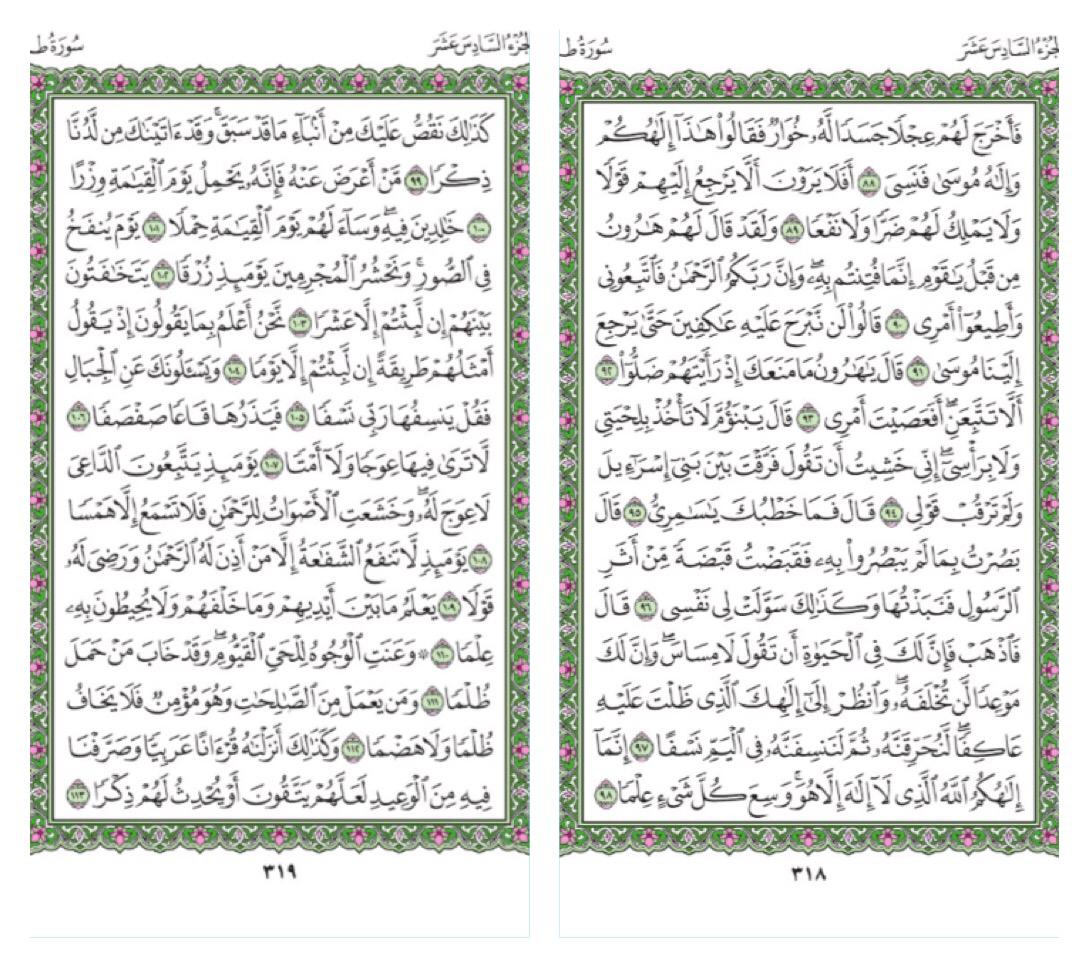 الجزء السادس عشر
سورة طه
فَأَخْرَجَ لَهُمْ عِجْلًا جَسَدًا لَّهُۥ خُوَارٌ فَقَالُوا۟ هَـٰذَآ إِلَـٰهُكُمْ
وَإِلَـٰهُ مُوسَىٰ فَنَسِىَ ٨٨ أَفَلَا يَرَوْنَ أَلَّا يَرْجِعُ إِلَيْهِمْ قَوْلًا
وَلَا يَمْلِكُ لَهُمْ ضَرًّا وَلَا نَفْعًا ٨٩ وَلَقَدْ قَالَ لَهُمْ هَـٰرُونُ
مِن قَبْلُ يَـٰقَوْمِ إِنَّمَا فُتِنتُم بِهِۦۖ وَإِنَّ رَبَّكُمُ ٱلرَّحْمَـٰنُ فَٱتَّبِعُونِى
وَأَطِيعُوٓا۟ أَمْرِى ٩٠ قَالُوا۟ لَن نَّبْرَحَ عَلَيْهِ عَـٰكِفِينَ حَتَّىٰ يَرْجِعَ
إِلَيْنَا مُوسَىٰ ٩١ قَالَ يَـٰهَـٰرُونُ مَا مَنَعَكَ إِذْ رَأَيْتَهُمْ ضَلُّوٓا۟ ٩٢
أَلَّا تَتَّبِعَنِۖ أَفَعَصَيْتَ أَمْرِى ٩٣ قَالَ يَبْنَؤُمَّ لَا تَأْخُذْ بِلِحْيَتِى
وَلَا بِرَأْسِىٓۖ إِنِّى خَشِيتُ أَن تَقُولَ فَرَّقْتَ بَيْنَ بَنِىٓ إِسْرَٰٓءِيلَ
وَلَمْ تَرْقُبْ قَوْلِى ٩٤ قَالَ فَمَا خَطْبُكَ يَـٰسَـٰمِرِىُّ ٩٥ قَالَ
بَصُرْتُ بِمَا لَمْ يَبْصُرُوا۟ بِهِۦ فَقَبَضْتُ قَبْضَةً مِّنْ أَثَرِ
ٱلرَّسُولِ فَنَبَذْتُهَا وَكَذَٰلِكَ سَوَّلَتْ لِى نَفْسِى ٩٦ قَالَ
فَٱذْهَبْ فَإِنَّ لَكَ فِى ٱلْحَيَوٰةِ أَن تَقُولَ لَا مِسَاسَۖ وَإِنَّ لَكَ
مَوْعِدًا لَّن تُخْلَفَهُۥۖ وَٱنظُرْ إِلَىٰٓ إِلَـٰهِكَ ٱلَّذِى ظَلْتَ عَلَيْهِ
عَاكِفًاۖ لَّنُحَرِّقَنَّهُۥ ثُمَّ لَنَنسِفَنَّهُۥ فِى ٱلْيَمِّ نَسْفًا ٩٧ إِنَّمَآ
إِلَـٰهُكُمُ ٱللَّهُ ٱلَّذِى لَآ إِلَـٰهَ إِلَّا هُوَۚ وَسِعَ كُلَّ شَىْءٍ عِلْمًا ٩٨
٣١٨
الجزء السادس عشر
سورة طه
كَذَٰلِكَ نَقُصُّ عَلَيْكَ مِنْ أَنۢبَآءِ مَا قَدْ سَبَقَۚ وَقَدْ ءَاتَيْنَـٰكَ مِن لَّدُنَّا
ذِكْرًا ٩٩ مَّنْ أَعْرَضَ عَنْهُ فَإِنَّهُۥ يَحْمِلُ يَوْمَ ٱلْقِيَـٰمَةِ وِزْرًا
١٠٠ خَـٰلِدِينَ فِيهِۖ وَسَآءَ لَهُمْ يَوْمَ ٱلْقِيَـٰمَةِ حِمْلًا ١٠١ يَوْمَ يُنفَخُ
فِى ٱلصُّورِۚ وَنَحْشُرُ ٱلْمُجْرِمِينَ يَوْمَئِذٍ زُرْقًا ١٠٢ يَتَخَـٰفَتُونَ
بَيْنَهُمْ إِن لَّبِثْتُمْ إِلَّا عَشْرًا ١٠٣ نَّحْنُ أَعْلَمُ بِمَا يَقُولُونَ إِذْ يَقُولُ
أَمْثَلُهُمْ طَرِيقَةً إِن لَّبِثْتُمْ إِلَّا يَوْمًا ١٠٤ وَيَسْـَٔلُونَكَ عَنِ ٱلْجِبَالِ
فَقُلْ يَنسِفُهَا رَبِّى نَسْفًا ١٠٥ فَيَذَرُهَا قَاعًا صَفْصَفًا ١٠٦
لَّا تَرَىٰ فِيهَا عِوَجًا وَلَآ أَمْتًا ١٠٧ يَوْمَئِذٍ يَتَّبِعُونَ ٱلدَّاعِىَ
لَا عِوَجَ لَهُۥۖ وَخَشَعَتِ ٱلْأَصْوَاتُ لِلرَّحْمَـٰنِ فَلَا تَسْمَعُ إِلَّا هَمْسًا
١٠٨ يَوْمَئِذٍ لَّا تَنفَعُ ٱلشَّفَـٰعَةُ إِلَّا مَنْ أَذِنَ لَهُ ٱلرَّحْمَـٰنُ وَرَضِىَ لَهُۥ
قَوْلًا ١٠٩ يَعْلَمُ مَا بَيْنَ أَيْدِيهِمْ وَمَا خَلْفَهُمْ وَلَا يُحِيطُونَ بِهِۦ
عِلْمًا ١١٠ ۞ وَعَنَتِ ٱلْوُجُوهُ لِلْحَىِّ ٱلْقَيُّومِۖ وَقَدْ خَابَ مَنْ حَمَلَ
ظُلْمًا ١١١ وَمَن يَعْمَلْ مِنَ ٱلصَّـٰلِحَـٰتِ وَهُوَ مُؤْمِنٌ فَلَا يَخَافُ
ظُلْمًا وَلَا هَضْمًا ١١٢ وَكَذَٰلِكَ أَنزَلْنَـٰهُ قُرْءَانًا عَرَبِيًّا وَصَرَّفْنَا
فِيهِ مِنَ ٱلْوَعِيدِ لَعَلَّهُمْ يَتَّقُونَ أَوْ يُحْدِثُ لَهُمْ ذِكْرًا ١١٣
٣١٩